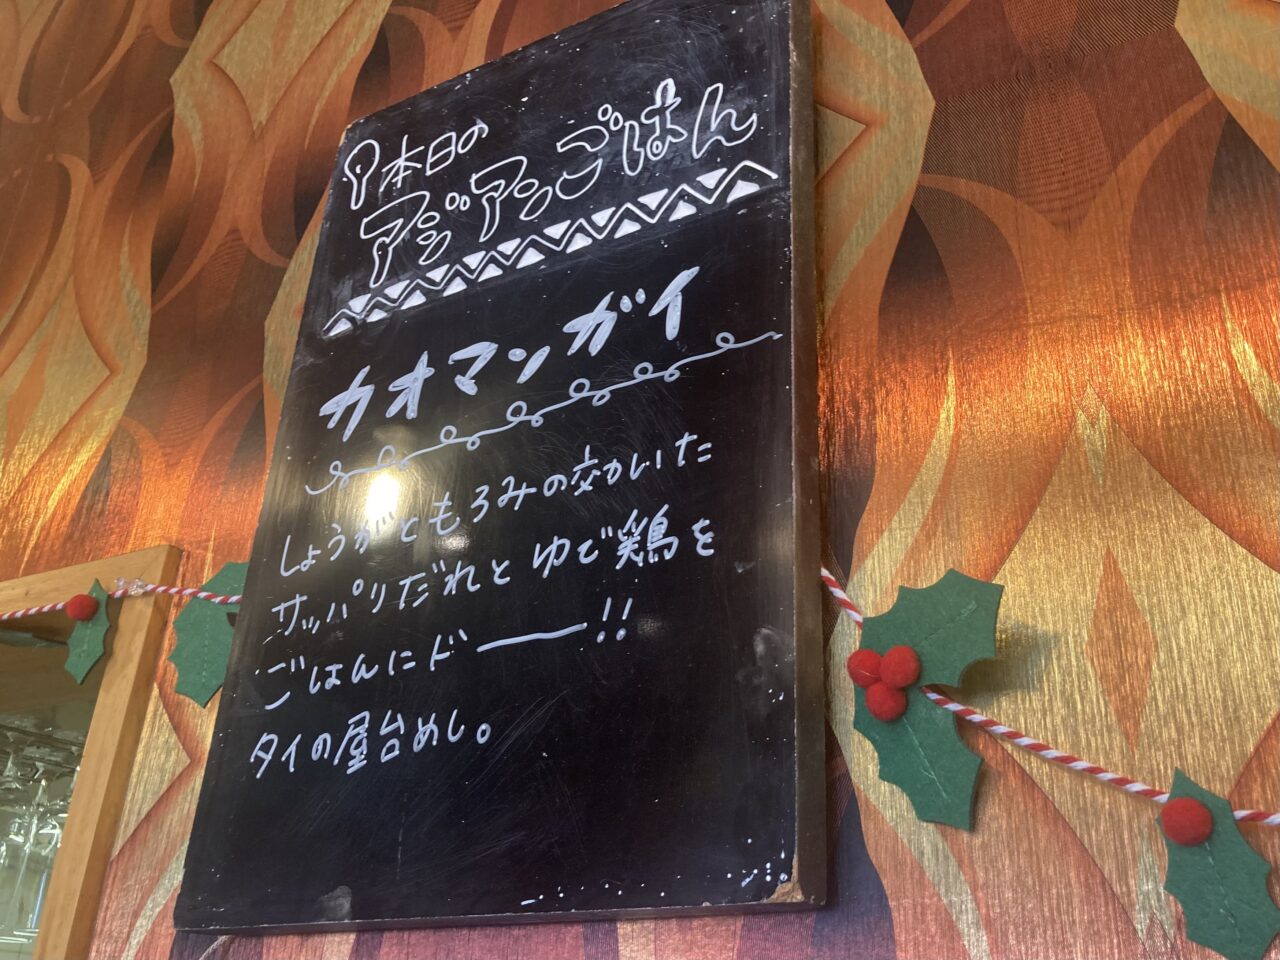 本日の
アジアンごはん
カオマンガイ
しょうがともろみの効いた
サッパリだれとゆで鶏を
ごはんにドーー!!
タイの屋台めし。